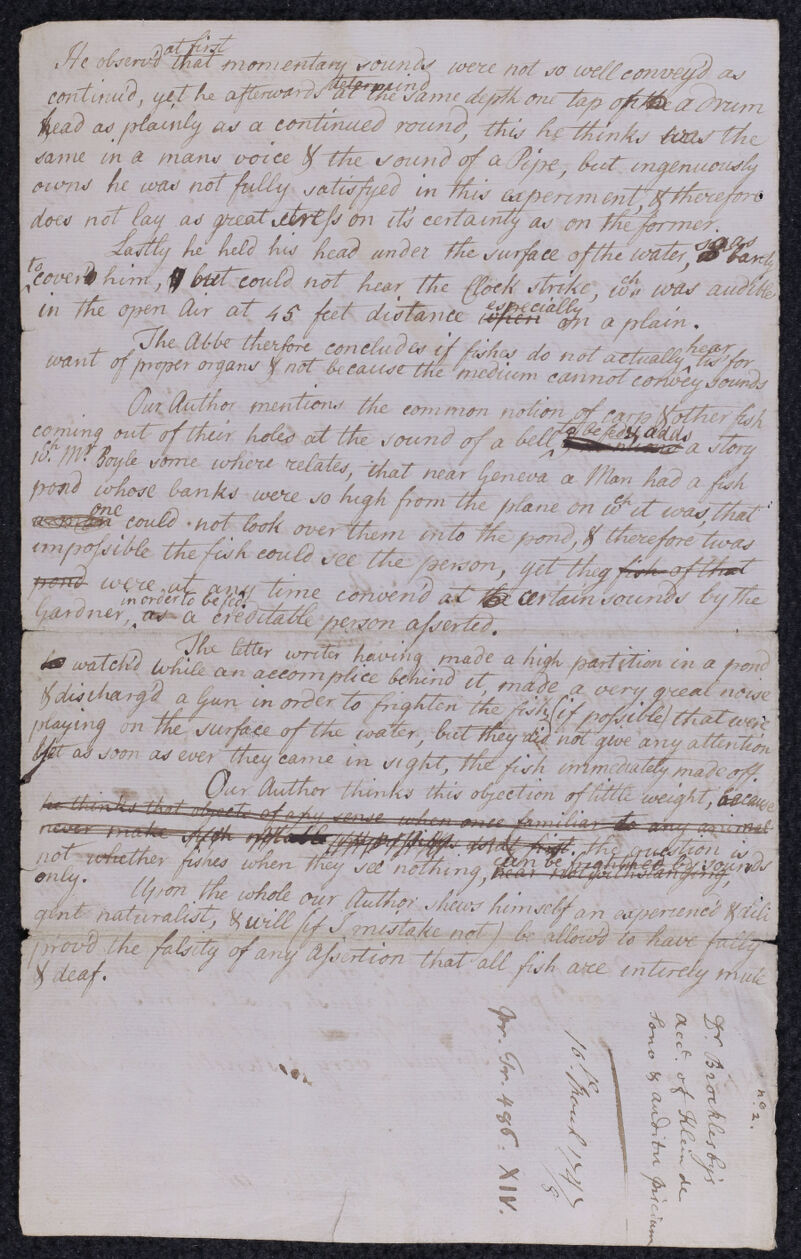 He observ'd at first that momentary sounds were not so well convey'd as
continued, yet he afterwards determind at the same depth one tap of a drum
head as plainly as a continued round, this he thinks was the
same in a mans voice & the sound of a Pipe, but ingenuously
owns he was not fully satisfyed in this experiment, & therefore
does not lay as great stress on it's certainty as on the former.
Lastly he held his head under the surface of the water, as barely
to cover him, but could not hear the Clock strike, wch was audible
in the open Air at 45 feet distance when especially on a plain.
The Abbe therfore concludes if fishes do not actually hear tis for
want of proper organs & not because the medium cannot convey sounds
Our Author mentions the common notion of carp & other fish
coming out of their holes at the sound of a bell to be fed, adds a story
wch Mr Boyle some where relates, that near Geneva a Man had a fish
pond whose banks were so high from the plane on wch it was, that
a man one could not look over them into the pond, & therefore twas
impossible the fish could see the person, yet they fish of that
pond were at any time convend at certain sounds by the
Gardner, in order to be fed, as a creditable person asserted.
The letter writer having made a high partition in a pond
watch'd while an accomplice behind it, made a very great noise
& discharg'd a Gun in order to frighten the fish (if possible) that were
playing on the surface of the water, but they did not give any attention
but as soon as ever they came in sight, the fish immediately made off.
Our Author thinks this objection of little weight, because
he thinks that objects of any sense when once familiar to any animal
never make such as at first, the question is
not whether fishes when they see nothing, hear notwithstanding, can be frightned by sounds
only. Upon the whole our Author shews himself an experienc'd & dili
gent naturalist, & will (if I mistake not) be allow'd to have fully
prov'd the falsity of any Assertion that all fish are intirely mute
& deaf.
no. 2.
Dr. Brocklesby's
acct. of Klein de
sono & auditu piscium
16. March 1747/8
Pr. Tr. 486. XIV.